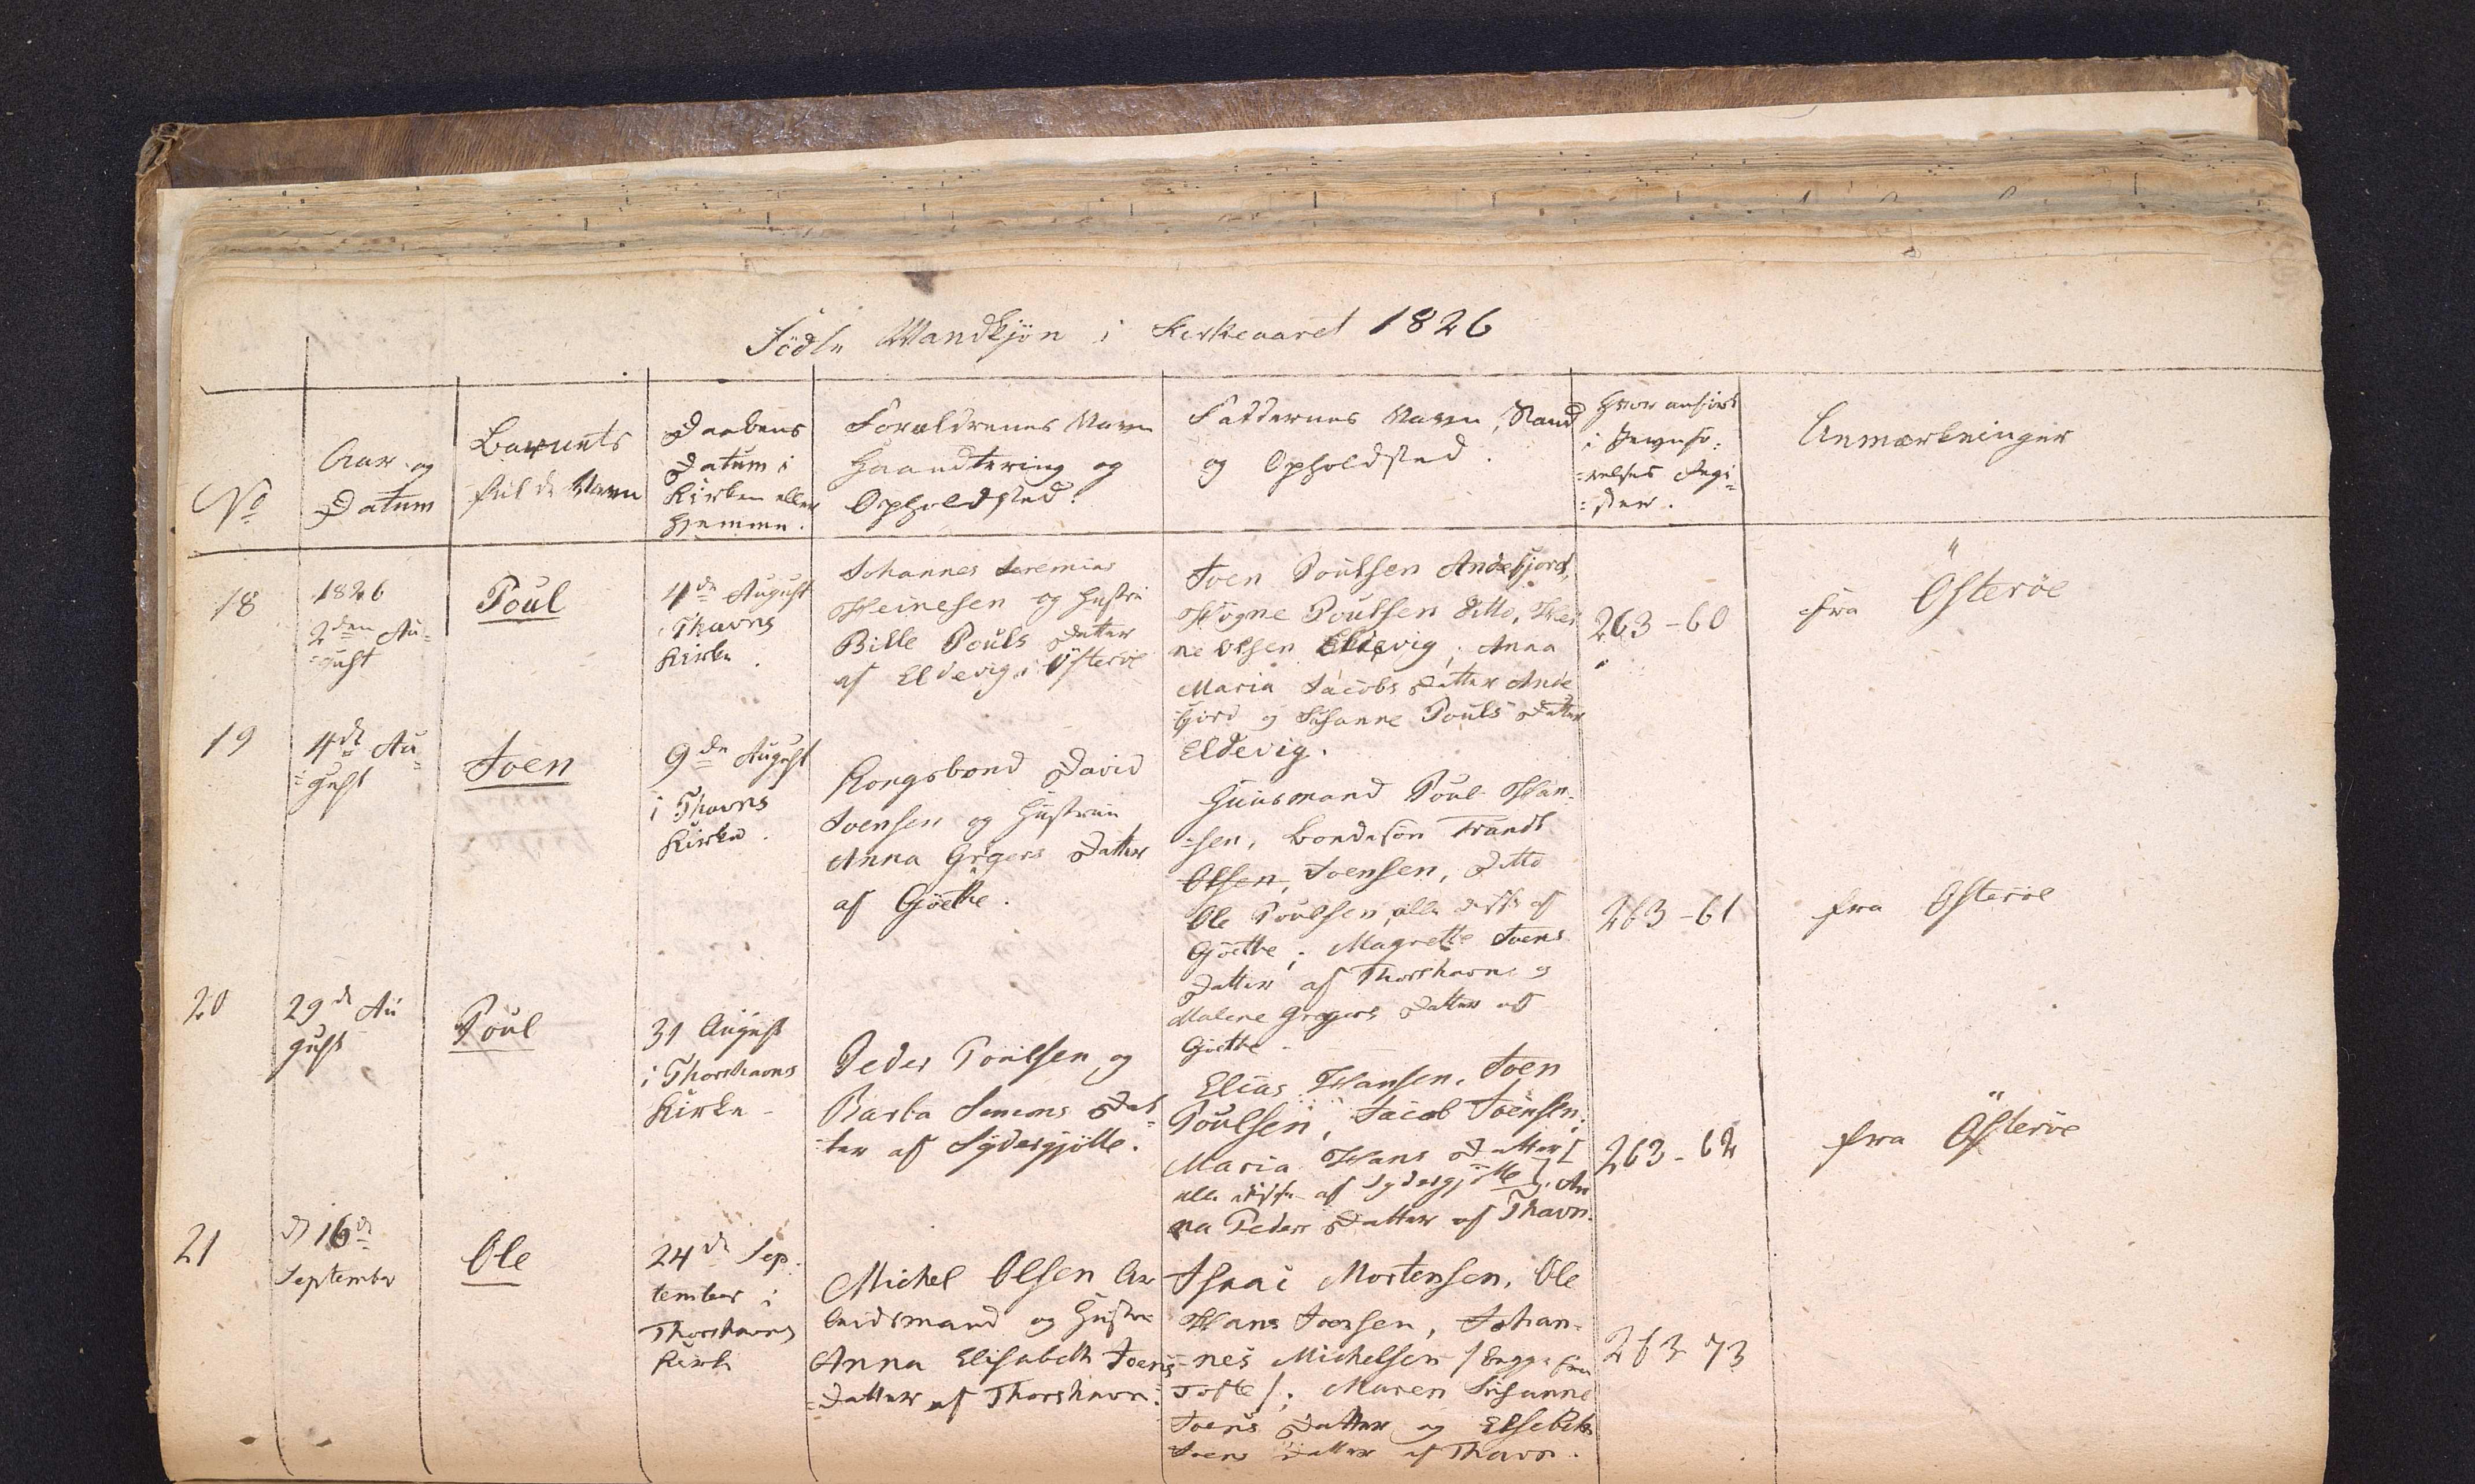 Födte Mandkjön i Kirkeaaret 1826
No
Aar og
Datum
Barnets
fulde Navn
Daabens
Datum i
Kirken eller
Hjemme.
Forældrenes Navn
Haandtering og
Opholdsted.
Faddernes Navn, Stand
og Opholdsted.
Hvor anfört
i Jevnfö-
-relses Regi-
-ster.
Anmærkninger
18
1826
2den Au-
-gust
Poul
4de August
i Thavns
Kirke.
Johannes Jeremias
Heinesen og Hustru
Bille Pouls Datter
af Eldevig i Österöe
Joen Poulsen Andefjord,
Högne Poulsen ditto, Hei
ne Olsen Eldevig, Anna
Maria Jacobs Datter Ande
fjord og Susanne Pouls Datter
Eldevig.
263-60
fra Österöe
19
4de Au-
-gust
Joen
9de August
i Thavns
Kirke.
Kongsbond David
Joensen og Hustrue
Anna Grégers Datter
af Gjöethe.
Huusmand Poul Han-
-sen, Bondesön Trondt
Olsen, Joensen, Ditto
Ole Poulsen, alle disse af
Gjöethe; Magrette Joens
Datter af Thorshavn og
Malene Gregers Datter af
Gjöethe.
263-61
fra Österöe
20
29de Au
gust
Poul
31 August
i Thorshavns
Kirke
Peder Poulsen og
Barba Simons Dat-
-ter af Sydergjötte.
Elias Hansen, Joen
Poulsen, Jacob Joensen,
Maria Hans Datter [
alle disse af Sydergjötte]. An
na Peders Datter af Thavn.
263-62
fra Österöe
21
d 16de
September
Ole
24de Sep-
tember i
Thorshavns
Kirke
Michel Olsen Ar
beidsmand og Hustru
Anna Elisabeth Joens
-Datter af Thorshavn.
Isaac Mortensen, Ole
Hans Joensen, Johan-
-nes Michelsen / begge fra
Tofte/; Maren Susanne
Joens Datter og Elsebeth
Joens Datter af Thavn.
263 73